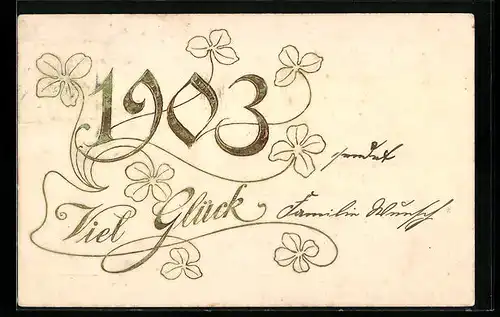 1903
sendet
Viel Glück Familie Wunsch